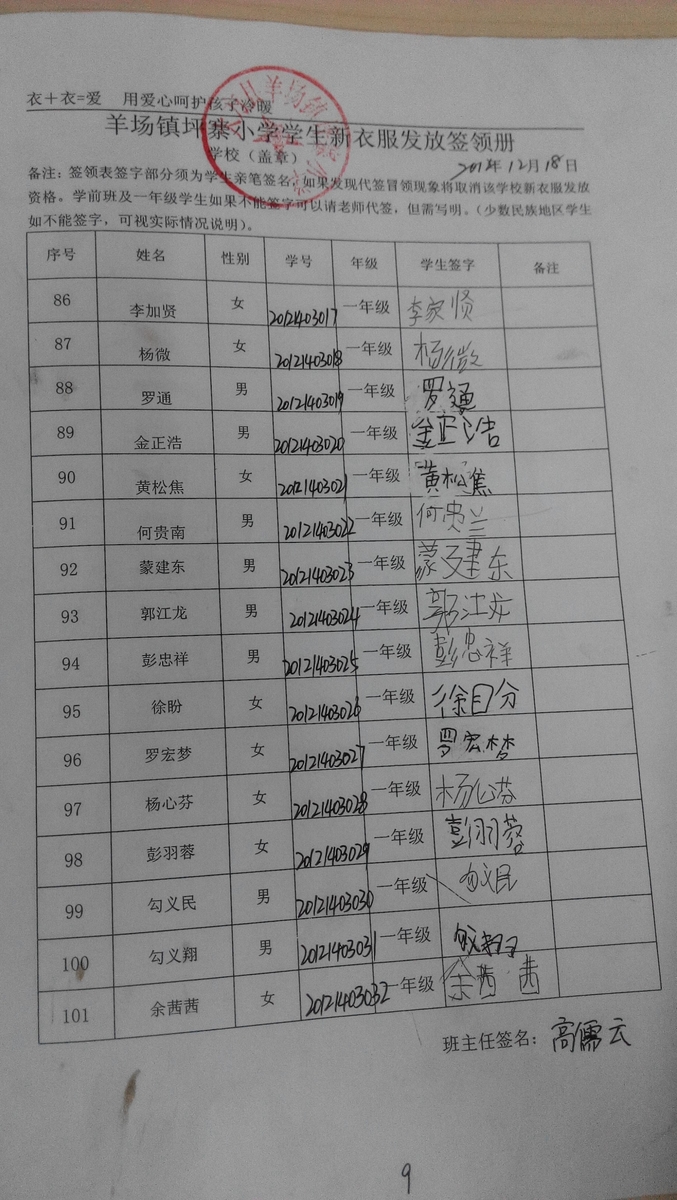 衣+衣=爱 用爱心呵护孩子冷暖
羊场镇坪寨小学学生新衣服发放签领册
学校（盖章） 2012年12月18日
备注：签领表签字部分须为学生亲笔签名，如果发现代签冒领现象将取消该学校新衣服发放
资格。学前班及一年级学生如果不能签字可以请老师代签，但需写明。（少数民族地区学生
如不能签字，可视实际情况说明）。
序号 姓名 性别 学号 年级 学生签字 备注
86 李加贤 女 20121403017 一年级 李家贤
87 杨微 女 20121403018 一年级 杨微
88 罗通 男 20121403019 一年级 罗通
89 金正浩 男 20121403020 一年级 金正浩
90 黄松焦 女 20121403021 一年级 黄松焦
91 何贵南 男 20121403022 一年级 何贵兰
92 蒙建东 男 20121403023 一年级 蒙建东
93 郭江龙 男 20121403024 一年级 郭江龙
94 彭忠祥 男 20121403025 一年级 彭忠祥
95 徐盼 女 20121403026 一年级 徐盼
96 罗宏梦 女 20121403027 一年级 罗宏梦
97 杨心芬 女 20121403028 一年级 杨心芬
98 彭羽蓉 女 20121403029 一年级 彭羽蓉
99 勾义民 男 20121403030 一年级 勾义民
100 勾义翔 男 20121403031 一年级
101 余茜茜 女 20121403032 一年级 余茜茜
班主任签名：高儒云
9